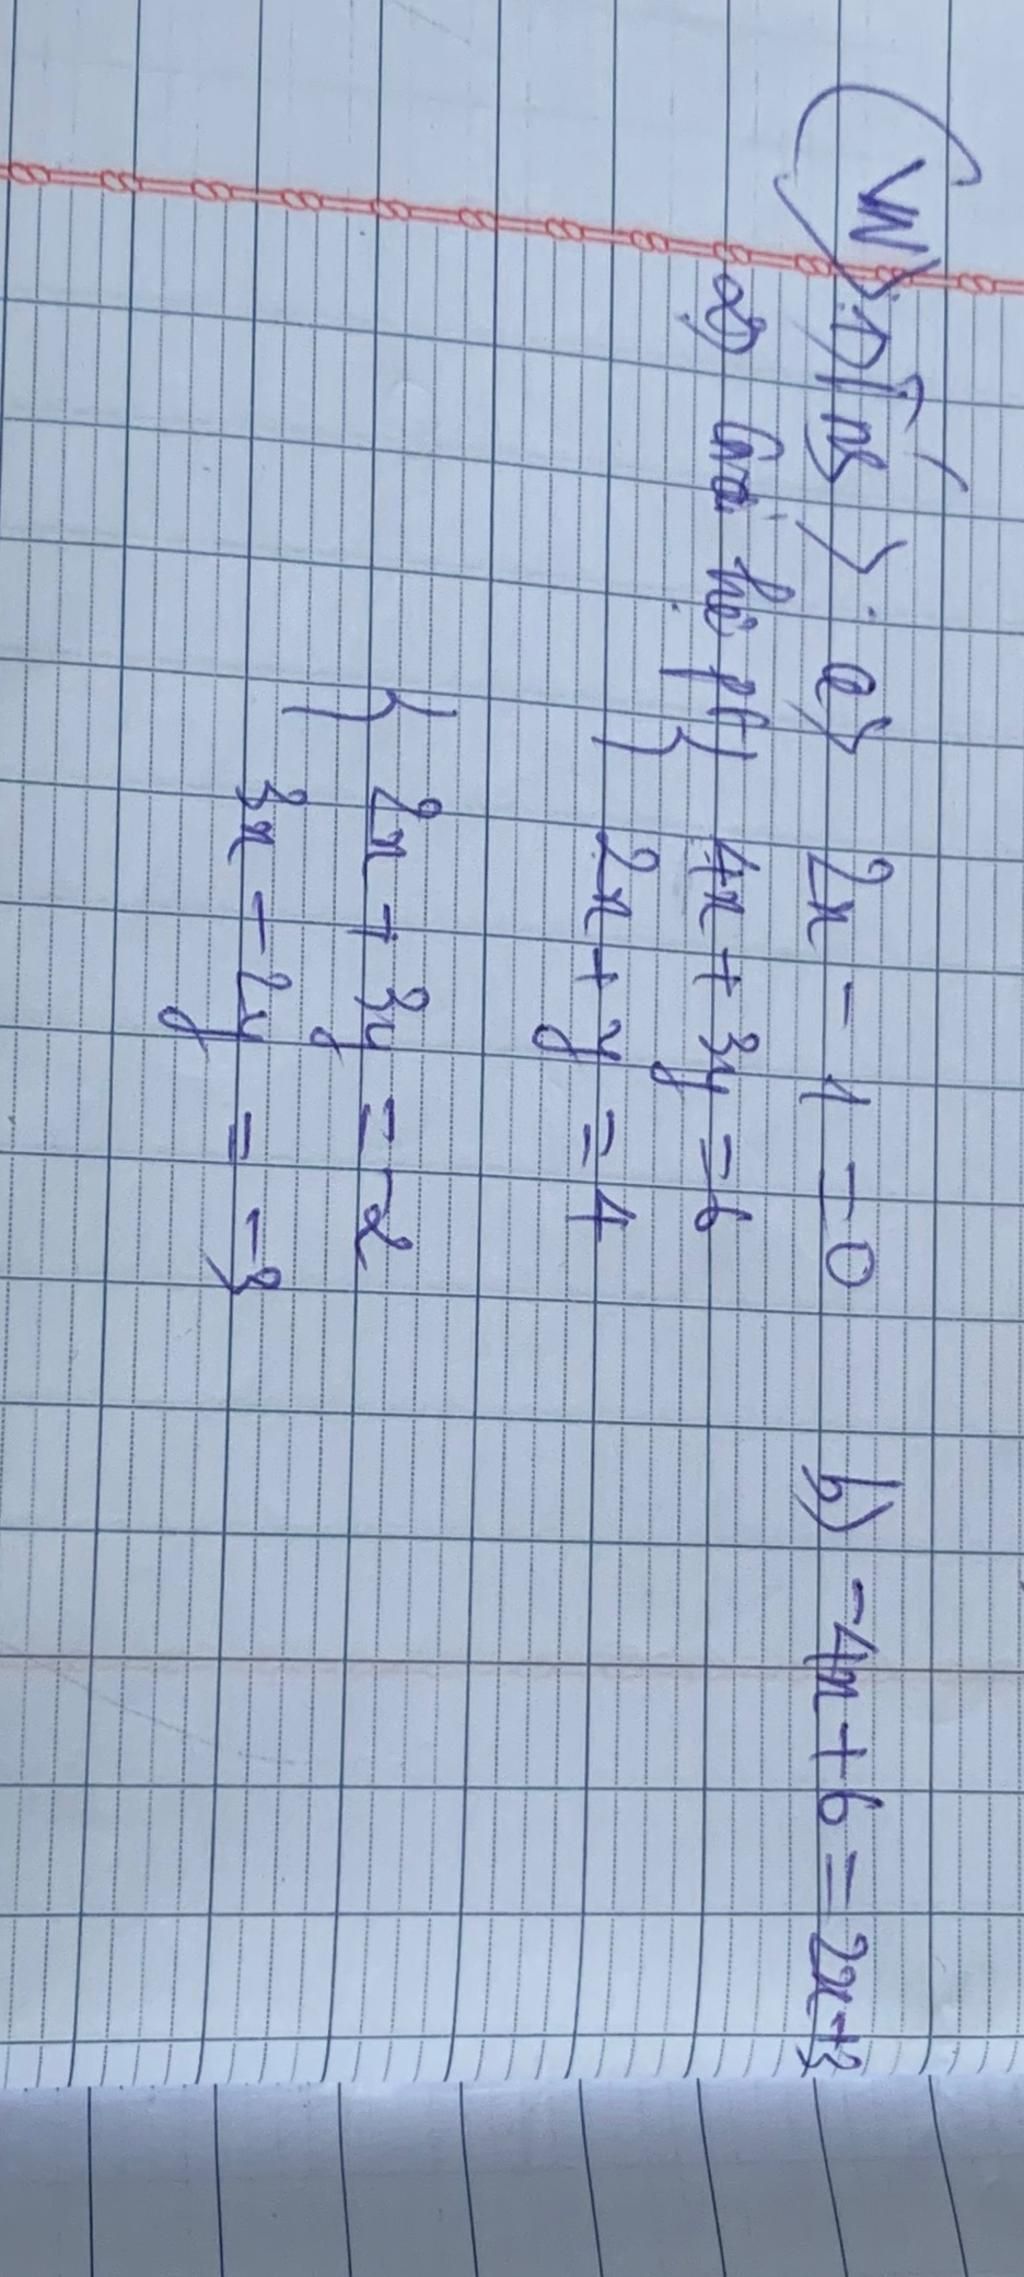 VN
1) Pt: a) 2x - 1 = 0 b) -4x + 6 = 2x + 3
2) Giải hệ pt) { 4x + 3y = 6
2x + y = 4
{ 2x + 3y = -2
3x - 2y = -3